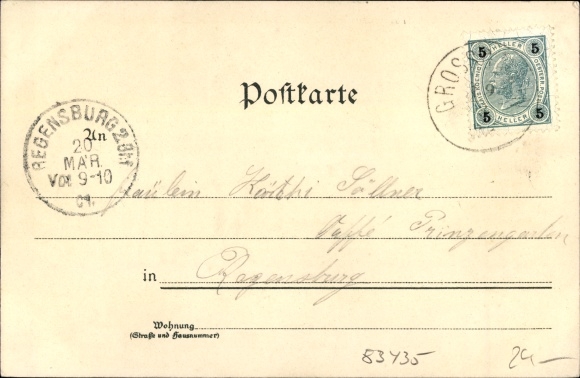 Postkarte
GROSS
5 HELLER 5
5 HELLER 5
REGENSBURG 2.BHf
20
MAR.
Vor 9-10
01.
An
Fräulein Käthi Söllner
Caffé Prinzengarten
in Regensburg
Wohnung
(Straße und Hausnummer)
83435
24.-